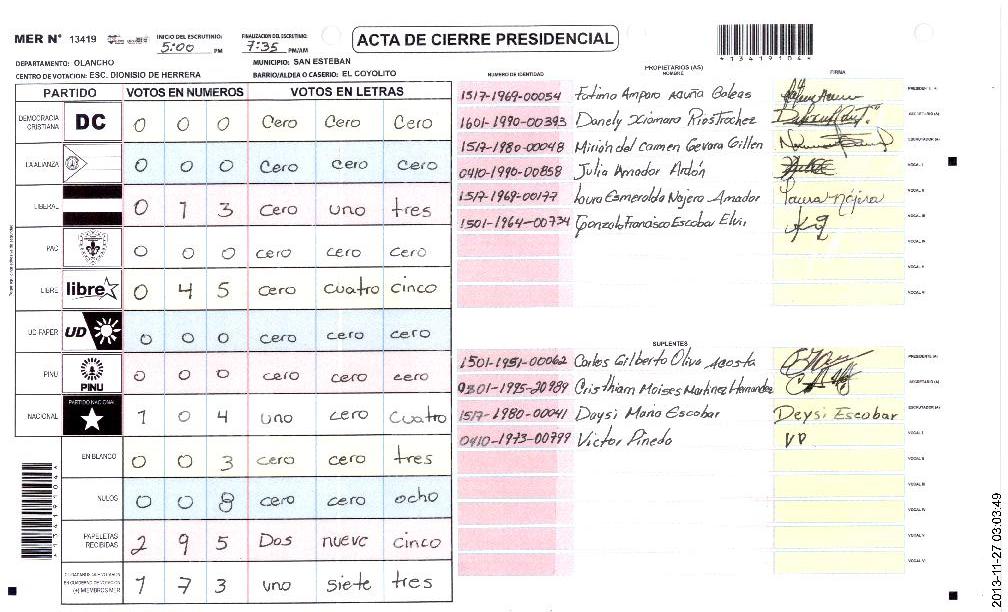 MER Nº 13419
INICIO DEL ESCRUTINIO: 5:00 PM
FINALIZACION DEL ESCRUTINIO: 7:35 PM/AM
ACTA DE CIERRE PRESIDENCIAL
*13419104*
DEPARTAMENTO: OLANCHO
MUNICIPIO: SAN ESTEBAN
CENTRO DE VOTACION: ESC. DIONISIO DE HERRERA
BARRIO/ALDEA O CASERIO: EL COYOLITO
PARTIDO VOTOS EN NUMEROS VOTOS EN LETRAS
DEMOCRACIA CRISTIANA DC 0 0 0 Cero Cero Cero
LA ALIANZA 0 0 0 Cero cero cero
LIBERAL 0 1 3 cero uno tres
PAC 0 0 0 cero cero cero
LIBRE libre 0 4 5 cero cuatro cinco
UD-FAPER UD 0 0 0 cero cero cero
PINU PINU 0 0 0 cero cero cero
NACIONAL PARTIDO NACIONAL 1 0 4 uno cero cuatro
EN BLANCO 0 0 3 cero cero tres
NULOS 0 0 8 cero cero ocho
PAPELETAS RECIBIDAS 2 9 5 Dos nueve cinco
(+) MIEMBROS MER 1 7 3 uno siete tres
PROPIETARIOS (AS)
NUMERO DE IDENTIDAD NOMBRE FIRMA
1517-1969-00054 Fatima Amparo Acuña Galeas PRESIDENTE (A)
1601-1990-00393 Danely Xiomara Rios Trochez SECRETARIO (A)
1517-1980-00048 Mirian del Carmen Gevara Gillen ESCRUTADOR (A)
0410-1990-00858 Julia Amador Ardón VOCAL I
1517-1969-00177 Laura Esmeralda Najera Amador Laura Nájera VOCAL II
1501-1964-00734 Gonzalo Francisco Escobar Elvir VOCAL III
VOCAL IV
VOCAL V
VOCAL VI
SUPLENTES
1501-1951-00062 Carlos Gilberto Oliva Acosta PRESIDENTE (A)
0801-1995-20989 Cristhiam Moises Martinez Hernandez SECRETARIO (A)
1517-1980-00041 Daysi Maria Escobar Deysi Escobar ESCRUTADOR (A)
0410-1973-00799 Victor Pinedo VP VOCAL I
VOCAL II
VOCAL III
VOCAL IV
VOCAL V
VOCAL VI
*13419104*
2013-11-27 03:03:49